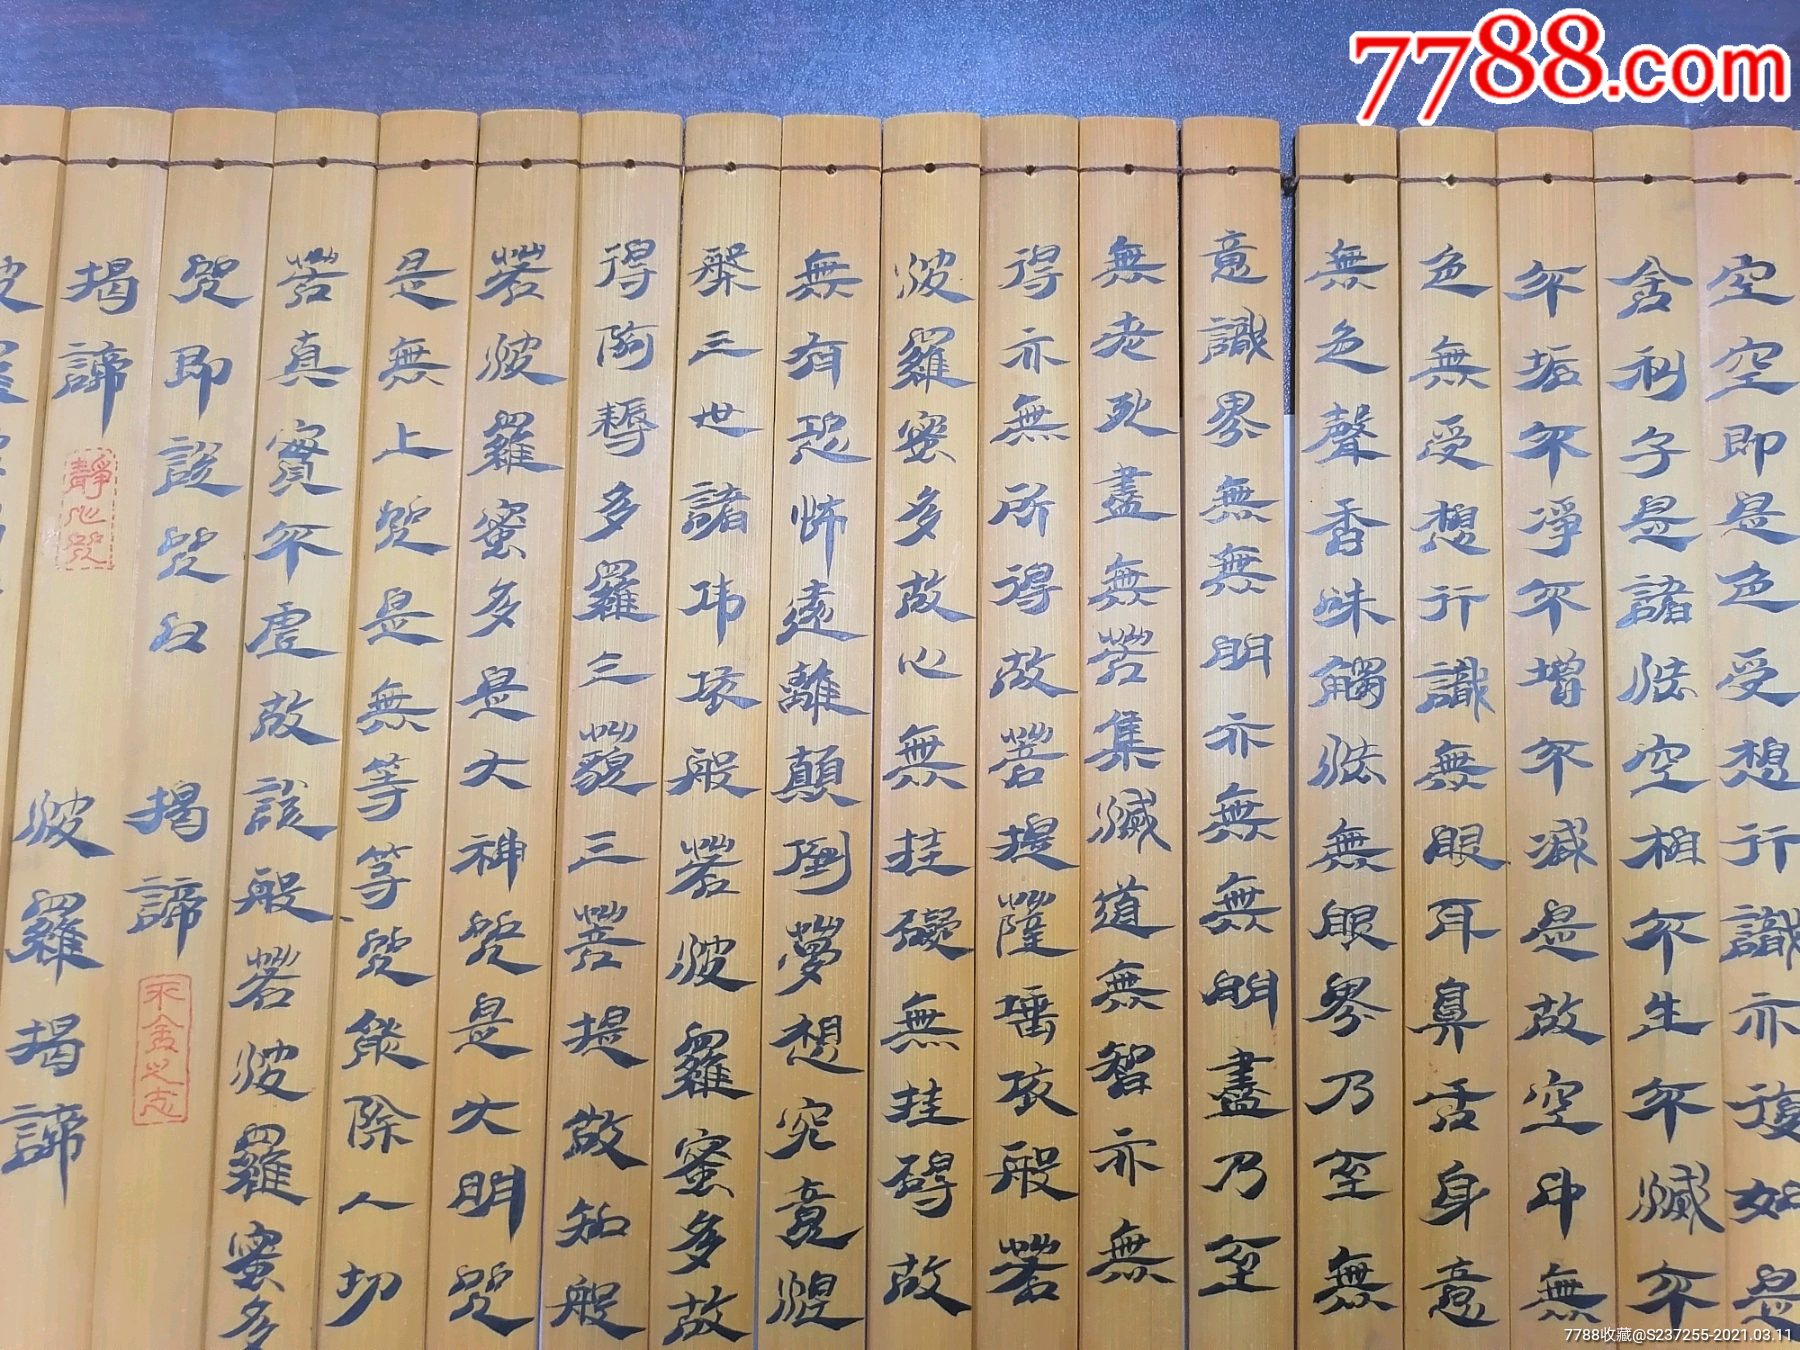 空空即是色受想行識亦復如是
舍利子是諸法空相不生不滅不
不垢不淨不增不減是故空中無
色無受想行識無眼耳鼻舌身意
無色聲香味觸法無眼界乃至無
意識界無無明亦無無明盡乃至
無老死盡無苦集滅道無智亦無
得亦無所得故菩提薩埵依般若
波羅蜜多故心無挂礙無挂碍故
無有恐怖遠離顛倒夢想究竟涅
槃三世諸佛依般若波羅蜜多故
得阿耨多羅三藐三菩提故知般
若波羅蜜多是大神咒是大明咒
是無上咒是無等等咒能除一切
苦真實不虛故說般若波羅蜜多
咒即說咒曰 揭諦
揭諦 靜心咒 波羅揭諦
波羅
7788.com
7788收藏@S237255-2021.03.11